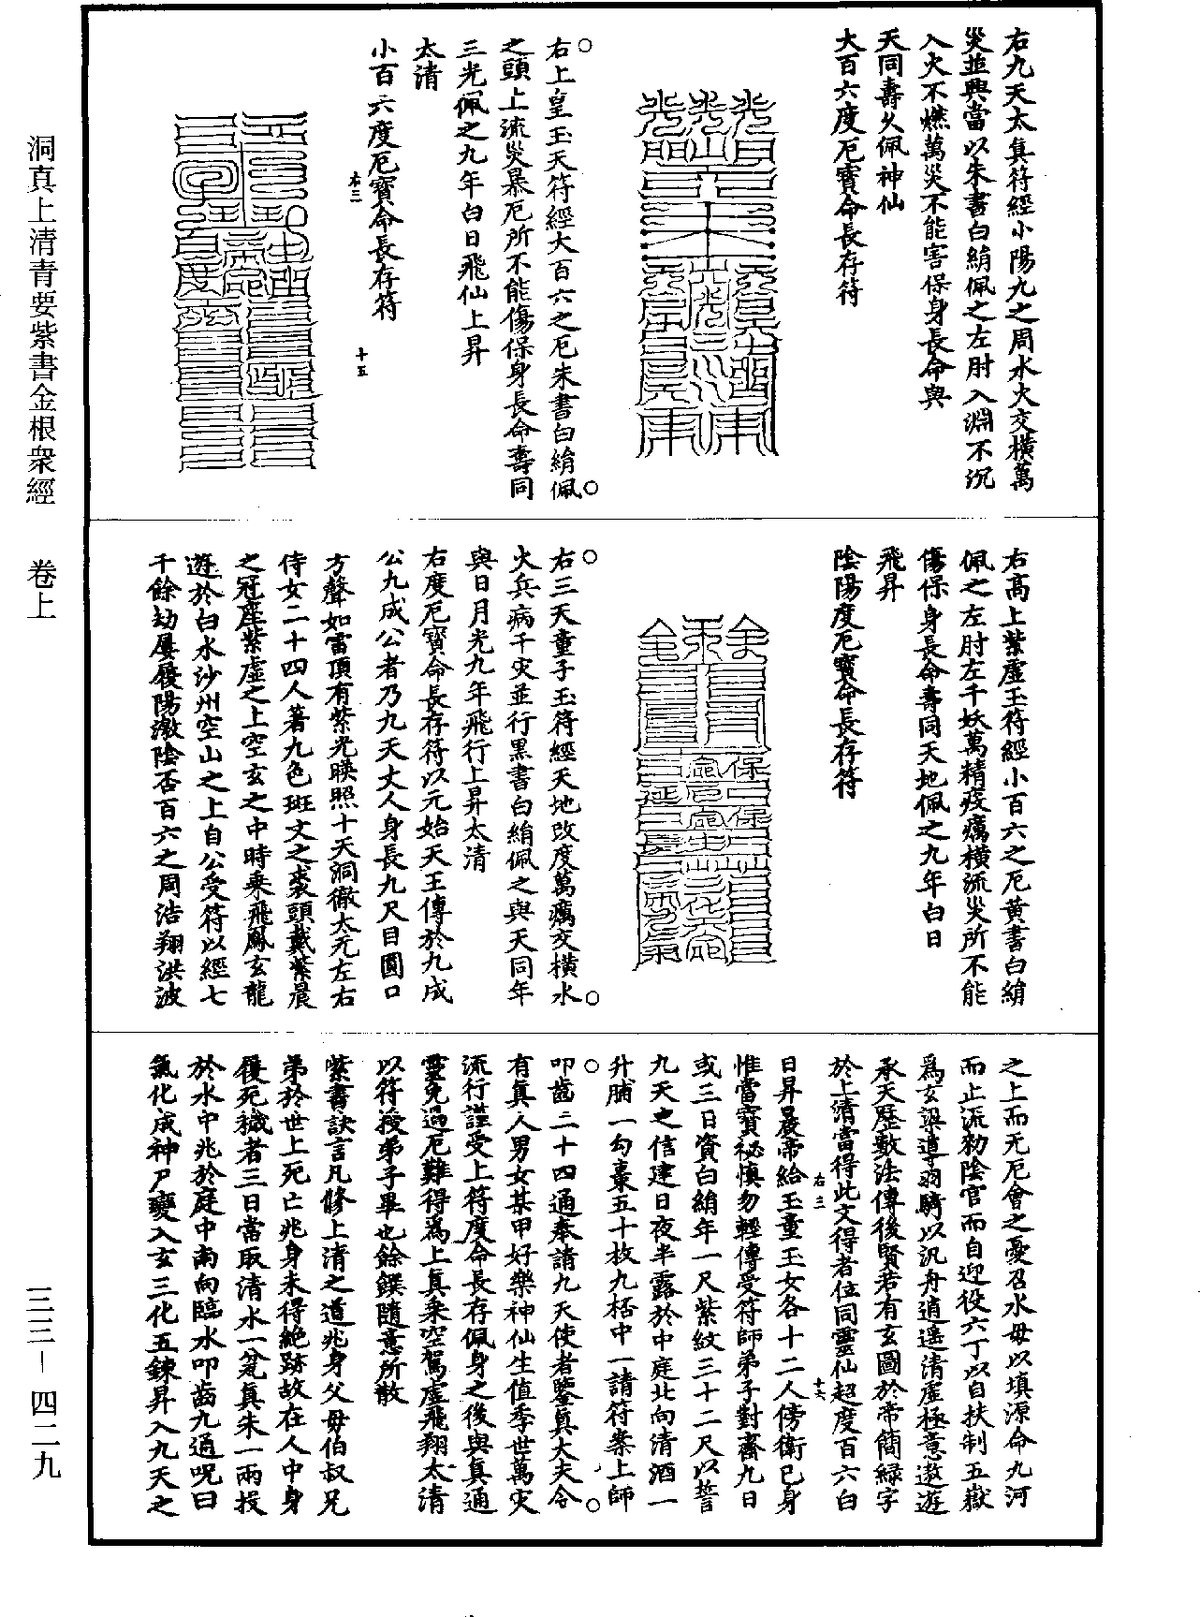 右九天太真符經小陽九之周水火交橫萬
災並興當以朱書白絹佩之左肘入淵不沉
入火不燃萬災不能害保身長命與
天同壽久佩神仙
大百六度厄寶命長存符
右上皇玉天符經大百六之厄朱書白絹佩
之頭上流災暴厄所不能傷保身長命壽同
三光佩之九年白日飛仙上昇
太清
小百六度厄寶命長存符
右三
十五
右高上紫虛玉符經小百六之厄黃書白絹
佩之左肘左千妖萬精疫癘橫流災所不能
傷保身長命壽同天地佩之九年白日
飛昇
陰陽度厄寶命長存符
右三天童子玉符經天地改度萬癘交橫水
火兵病千灾並行黑書白絹佩之與天同年
與日月光九年飛行上昇太清
右度厄寶命長存符以元始天王傳於九成
公九成公者乃九天丈人身長九尺目圓口
方聲如雷頂有紫光暎照十天洞徹太元左右
侍女二十四人著九色班文之裘頭戴紫晨
之冠座紫虛之上空玄之中時乘飛鳳玄龍
遊於白水沙州空山之上自公受符以經七
千餘劫屢履陽激陰否百六之周浩翔洪波
之上而无厄會之憂召水母以填源命九河
而止流勑陰官而自迎役六丁以自扶制五嶽
爲玄梁導羽騎以汎舟逍遥清虛極意遨遊
承天曆數法傳後賢若有玄圖於帝簡綠字
於上清當得此文得者位同靈仙超度百六白
右三
十六
日昇晨帝給玉童玉女各十二人傍衛已身
惟當寶祕慎勿輕傳受符師弟子對齋九日
或三日資白絹年一尺紫紋三十二尺以誓
九天之信建日夜半露於中庭北向清酒一
升脯一勾棗五十枚九柸中一請符案上師
叩齒二十四通奉請九天使者鑒真大夫令
有真人男女某甲好樂神仙生值季世萬灾
流行謹受上符度命長存佩身之後與真通
靈免過厄難得爲上真乘空駕虛飛翔太清
以符授弟子畢也餘饌隨意所散
紫書訣言凡修上清之道兆身父母伯叔兄
弟於世上死亡兆身未得絶跡故在人中身
履死穢者三日當取清水一瓮真朱一兩投
於水中兆於庭中南向臨水叩齒九通呪曰
氣化成神尸變入玄三化五鍊昇入九天之
洞真上清青要紫書金根衆經　卷上
三三—四二九